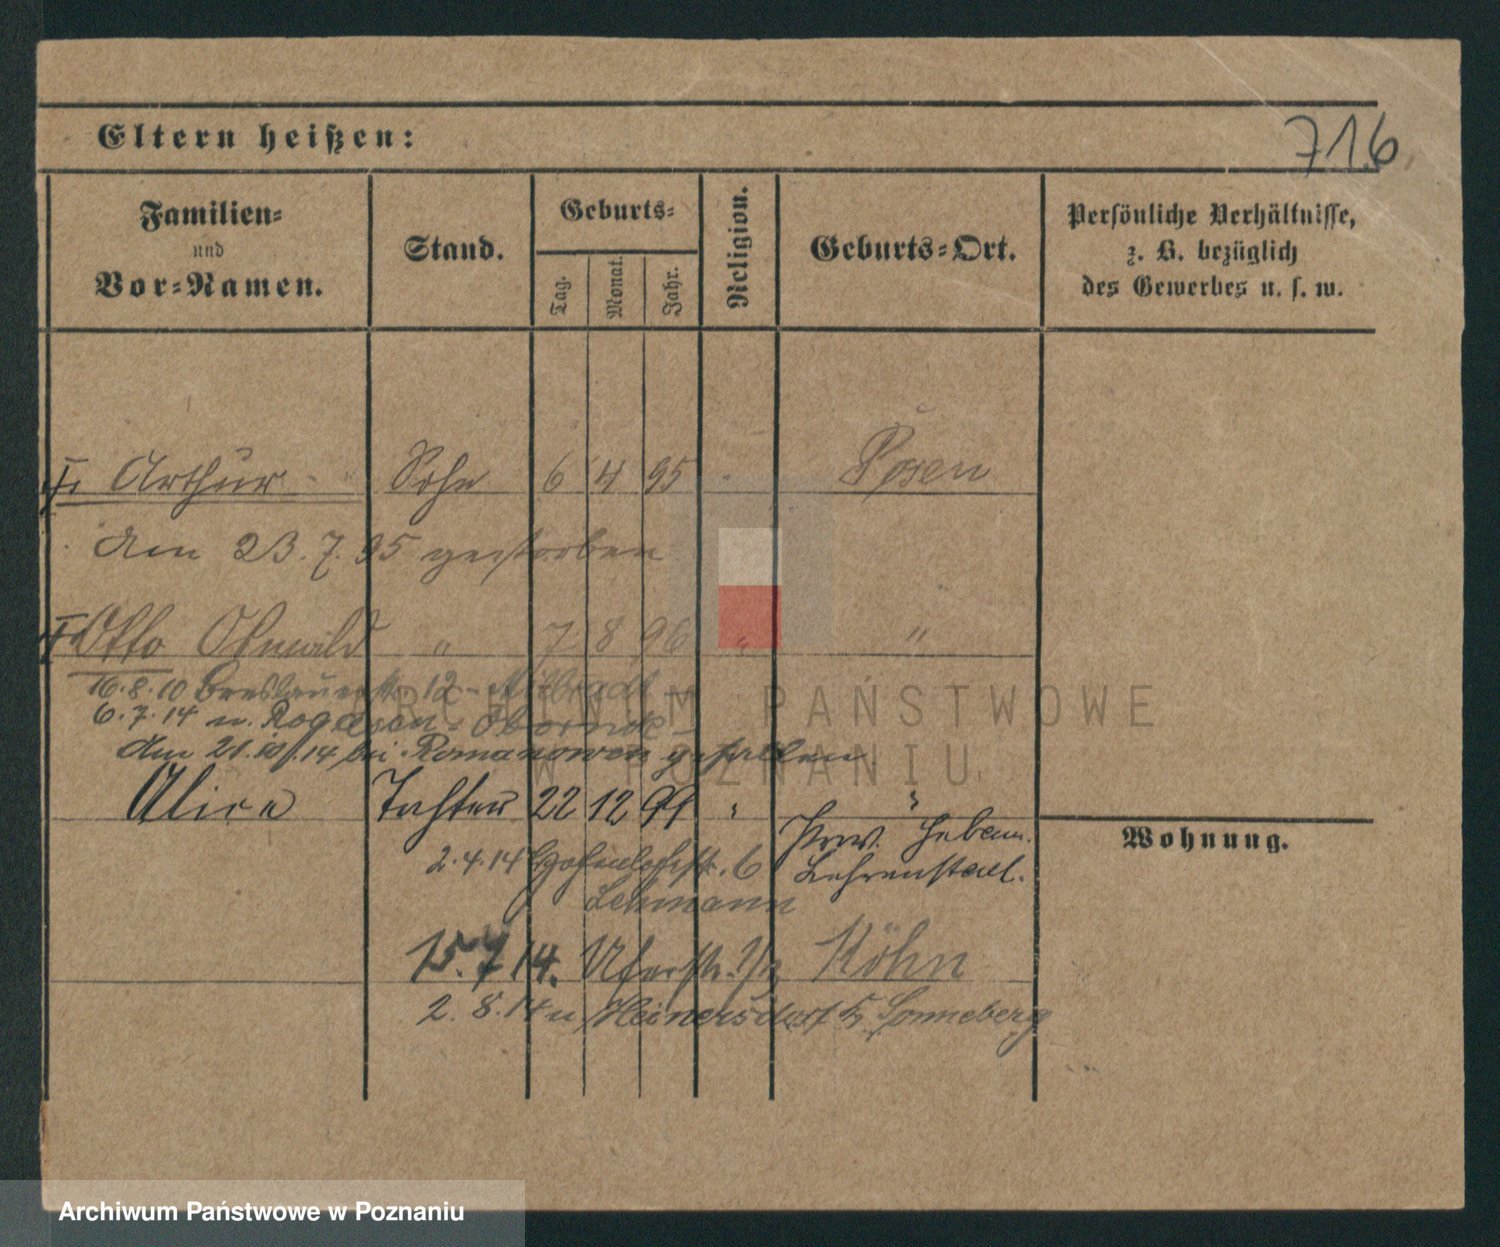 Eltern heißen:
716
Familien=
und
Vor=Namen.
Stand.
Geburts=
Tag.
Monat.
Jahr.
Religion.
Geburts=Ort.
Persönliche Verhältnisse,
z. B. bezüglich
des Gewerbes u. s. w.
Arthur Sohn 6 4 95 Posen
den 23.7.95 gestorben
Otto Oswald " 7 8 96 " "
16.8.10 Breslauerstr. 12
6.7.14 n. Rogasen - Obornik
den 21. 14 bei Romanowen gefallen
Alice Tochter 22 12 99 " "
Prov. Hebam.
Lehranstalt.
2.4.14 6
Lehmann
15.7.14. Uferstr. Köhn
2.8.14 n Heinersdorf Sonneberg
Wohnung.
ARCHIWUM PAŃSTWOWE
W POZNANIU
Archiwum Państwowe w Poznaniu